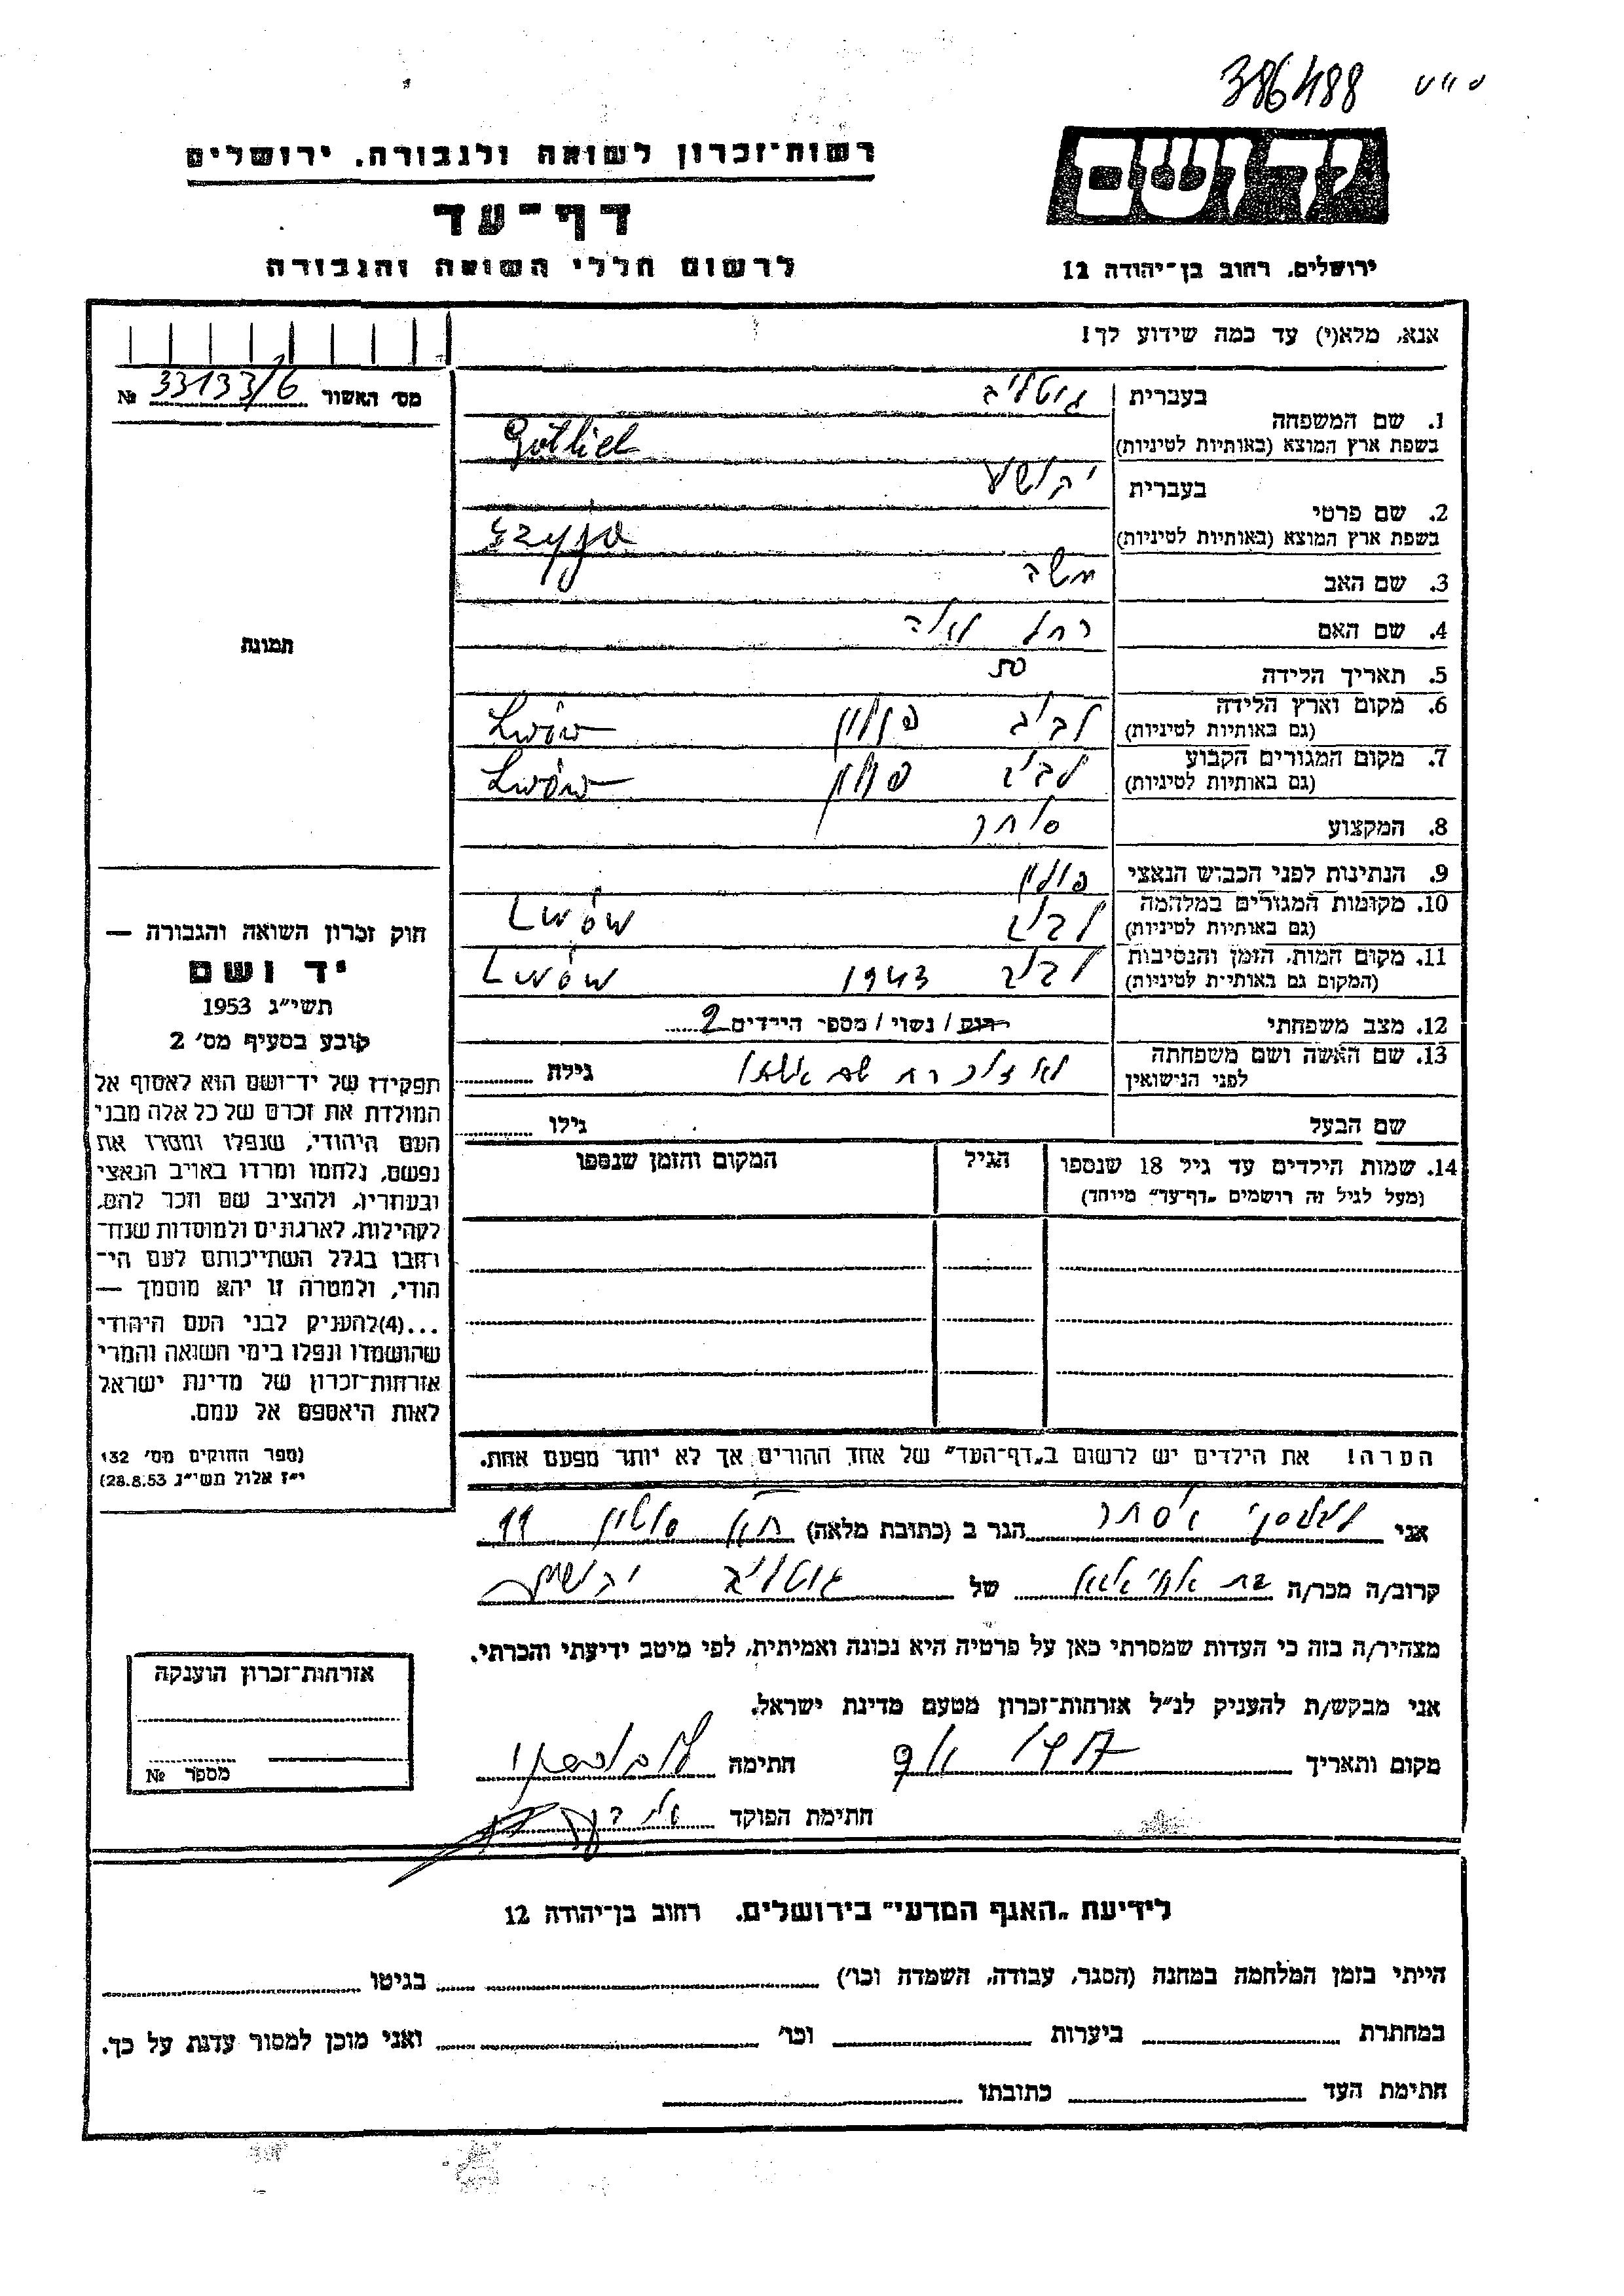 386488
יד ושם
רשות־זכרון לשואה ולגבורה, ירושלים
דף־עד
לרשום חללי השואה והגבורה
ירושלים, רחוב בן־יהודה 12
אנא, מלא(י) עד כמה שידוע לך!
מס׳ האשור 33133/6 №
תמונה
1. שם המשפחה
בעברית גוטליב
בשפת ארץ המוצא (באותיות לטיניות) Gotlieb
2. שם פרטי
בעברית יהושע
בשפת ארץ המוצא (באותיות לטיניות)
3. שם האב משה
4. שם האם רחל לאה
5. תאריך הלידה
6. מקום וארץ הלידה לבוב פולין Lwów
(גם באותיות לטיניות)
7. מקום המגורים הקבוע לבוב פולין Lwów
(גם באותיות לטיניות)
8. המקצוע סוחר
9. הנתינות לפני הכבוש הנאצי פולין
10. מקומות המגורים במלחמה לבוב Lwów
(גם באותיות לטיניות)
11. מקום המות, הזמן והנסיבות לבוב 1943 Lwów
(המקום גם באותיות לטיניות)
12. מצב משפחתי רווק / נשוי / מספר הילדים 2
13. שם האשה ושם משפחתה לא זוכרת שם אשתו גילה
לפני הנישואין
שם הבעל גילו
14. שמות הילדים עד גיל 18 שנספו הגיל המקום והזמן שנספו
(מעל לגיל זה רושמים „דף־עד״ מיוחד)
חוק זכרון השואה והגבורה —
יד ושם
תשי״ג 1953
קובע בסעיף מס׳ 2
תפקידו של יד־ושם הוא לאסוף אל
המולדת את זכרם של כל אלה מבני
העם היהודי, שנפלו ומסרו את
נפשם, נלחמו ומרדו באויב הנאצי
ובעוזריו, ולהציב שם וזכר להם,
לקהילות, לארגונים ולמוסדות שנח־
רחבו בגלל השתייכותם לעם הי־
הודי, ולמטרה זו יהא מוסמך —
...(4)להעניק לבני העם היהודי
שהושמדו ונפלו בימי השואה והמרי
אזרחות־זכרון של מדינת ישראל
לאות היאספם אל עמם.
(ספר החוקים מס׳ 132
י״ז אלול תשי״ג 28.8.53)
הערה! את הילדים יש לרשום ב„דף־העד״ של אחד ההורים אך לא יותר מפעם אחת.
אני הגר ב (כתובת מלאה) חולון 11
קרוב/ה מכר/ה של גוטליב יהושע
מצהיר/ה בזה כי העדות שמסרתי כאן על פרטיה היא נכונה ואמיתית, לפי מיטב ידיעתי והכרתי.
אני מבקש/ת להעניק לנ״ל אזרחות־זכרון מטעם מדינת ישראל.
מקום ותאריך חתימה
חתימת הפוקד
אזרחות־זכרון הוענקה
מספר №
לידיעת „האגף המדעי״ בירושלים, רחוב בן־יהודה 12
הייתי בזמן המלחמה במחנה (הסגר, עבודה, השמדה וכו׳) בגיטו
במחתרת ביערות וכו׳ ואני מוכן למסור עדות על כך.
חתימת העד כתובתו